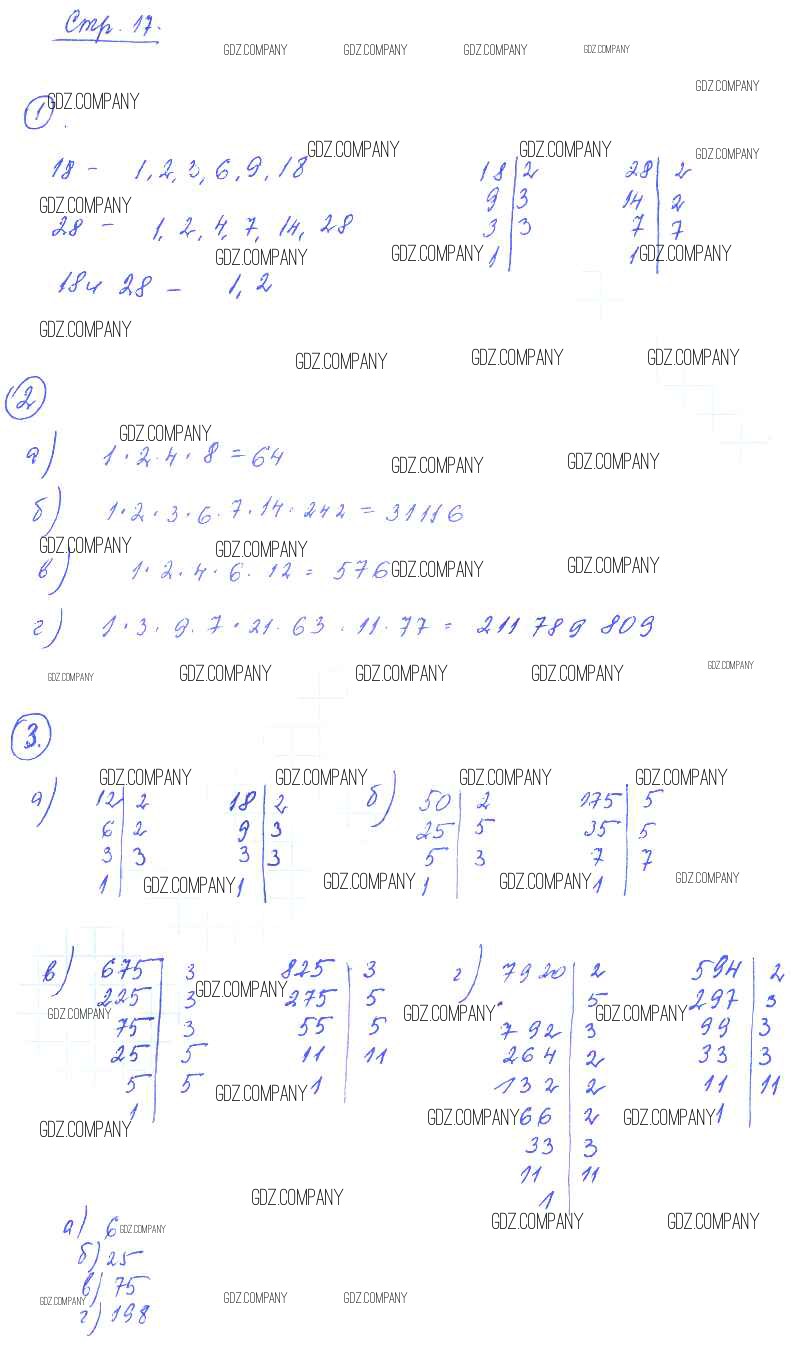 Стр. 17.
GDZ.COMPANY GDZ.COMPANY GDZ.COMPANY GDZ.COMPANY
GDZ.COMPANY
1
GDZ.COMPANY
GDZ.COMPANY GDZ.COMPANY GDZ.COMPANY
18 - 1, 2, 3, 6, 9, 18 18 2 28 2
GDZ.COMPANY 9 3 14 2
28 - 1, 2, 4, 7, 14, 28 3 3 7 7
GDZ.COMPANY GDZ.COMPANY 1 1 GDZ.COMPANY
18 и 28 - 1, 2
GDZ.COMPANY
GDZ.COMPANY GDZ.COMPANY GDZ.COMPANY
2
GDZ.COMPANY
а) 1 · 2 · 4 · 8 = 64
GDZ.COMPANY GDZ.COMPANY
б) 1 · 2 · 3 · 6 · 7 · 14 · 242 = 31116
GDZ.COMPANY GDZ.COMPANY
в) 1 · 2 · 4 · 6 · 12 = 576 GDZ.COMPANY GDZ.COMPANY
г) 1 · 3 · 9 · 7 · 21 · 63 · 11 · 77 = 211 789 809
GDZ.COMPANY GDZ.COMPANY GDZ.COMPANY GDZ.COMPANY GDZ.COMPANY
3.
GDZ.COMPANY GDZ.COMPANY GDZ.COMPANY GDZ.COMPANY
а) 12 2 18 2 б) 50 2 175 5
6 2 9 3 25 5 35 5
3 3 3 3 5 3 7 7
1 GDZ.COMPANY 1 GDZ.COMPANY 1 GDZ.COMPANY 1 GDZ.COMPANY
в) 675 3 825 3 г) 7920 2 594 2
225 3 GDZ.COMPANY 275 5 5 297 3
GDZ.COMPANY GDZ.COMPANY GDZ.COMPANY
75 3 55 5 792 3 99 3
25 5 11 11 264 2 33 3
5 5 GDZ.COMPANY 1 132 2 11 11
1 GDZ.COMPANY 66 2 GDZ.COMPANY 1
GDZ.COMPANY
33 3
11 11
GDZ.COMPANY 1
GDZ.COMPANY GDZ.COMPANY
а) 6 GDZ.COMPANY
б) 25
в) 75
GDZ.COMPANY GDZ.COMPANY GDZ.COMPANY
г) 198